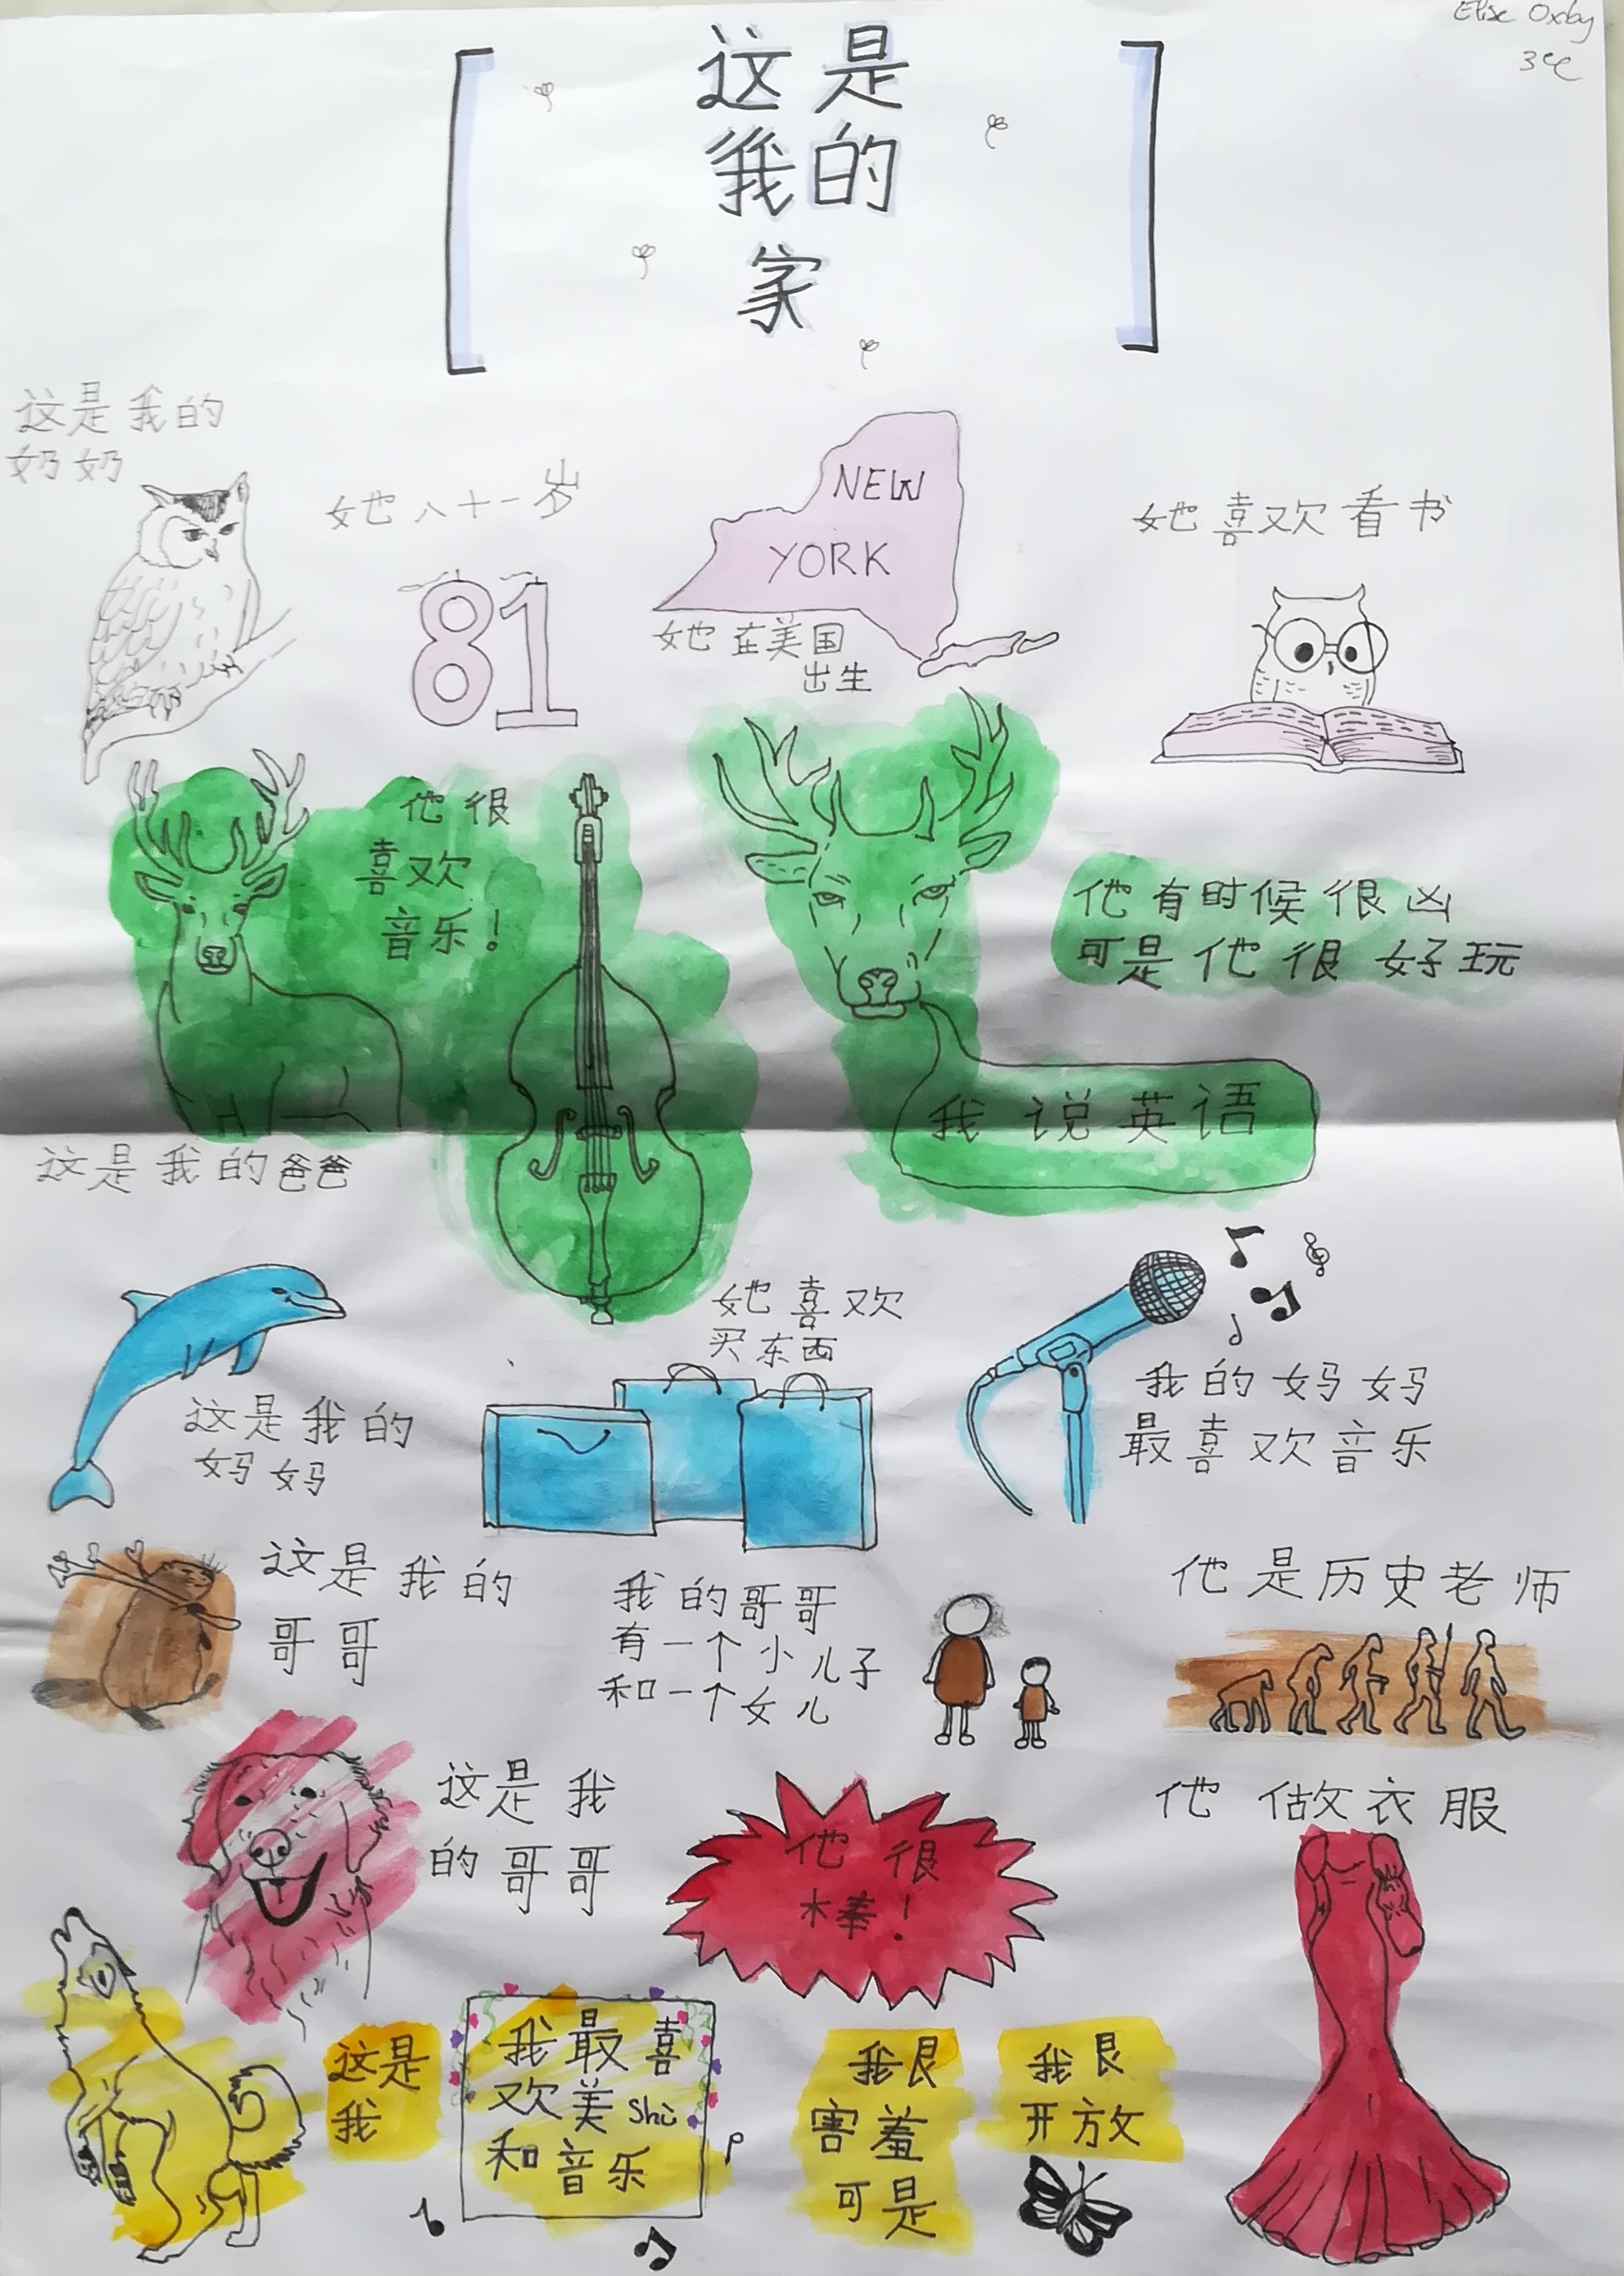 Elise Oxby
3e
这是
我的
家
这是我的
奶奶
她八十一岁
81
NEW
YORK
她在美国
出生
她喜欢看书
他很
喜欢
音乐!
他有时候很凶
可是他很好玩
我说英语
这是我的爸爸
这是我的
妈妈
她喜欢
买东西
我的妈妈
最喜欢音乐
这是我的
哥哥
我的哥哥
有一个小儿子
和一个女儿
他是历史老师
这是我
的哥哥
他很
棒!
他做衣服
这是
我
我最喜
欢美shù
和音乐
我艮
害羞
可是
我艮
开放